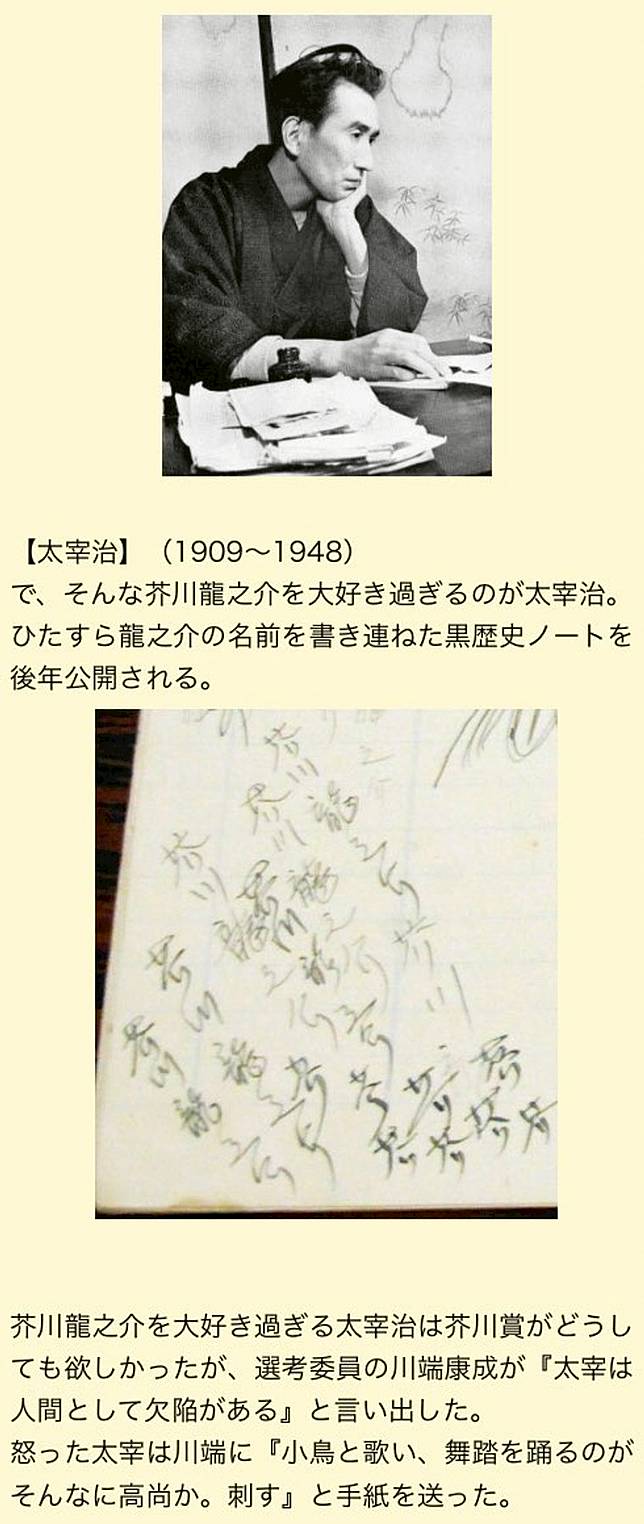 【太宰治】（1909〜1948）
で、そんな芥川龍之介を大好き過ぎるのが太宰治。
ひたすら龍之介の名前を書き連ねた黒歴史ノートを
後年公開される。
芥川
芥川
龍
之介
芥川
芥川
芥川
龍
之介
芥川龍之介を大好き過ぎる太宰治は芥川賞がどうし
ても欲しかったが、選考委員の川端康成が『太宰は
人間として欠陥がある』と言い出した。
怒った太宰は川端に『小鳥と歌い、舞踏を踊るのが
そんなに高尚か。刺す』と手紙を送った。